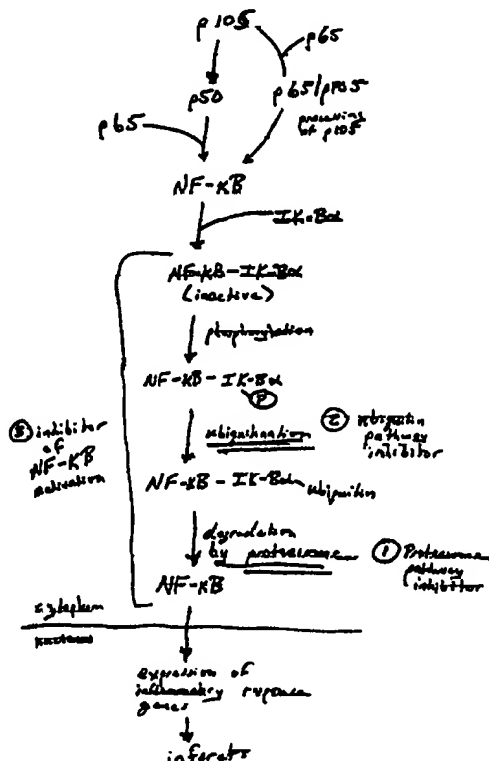 p105
p65
p50
p65/p105
processing
of p105
p65
NF-KB
IK-Bα
NF-KB-IK-Bα
(inactive)
phosphorylation
NF-KB-IK-Bα
P
ubiquitination
② ubiquitin
pathway
inhibitor
③ inhibitor
of
NF-KB
activation
NF-KB-IK-Bα
ubiquitin
degradation
by proteasome
① Proteasome
pathway
inhibitor
NF-KB
cytoplasm
nucleus
expression of
inflammatory response
genes
infarcts